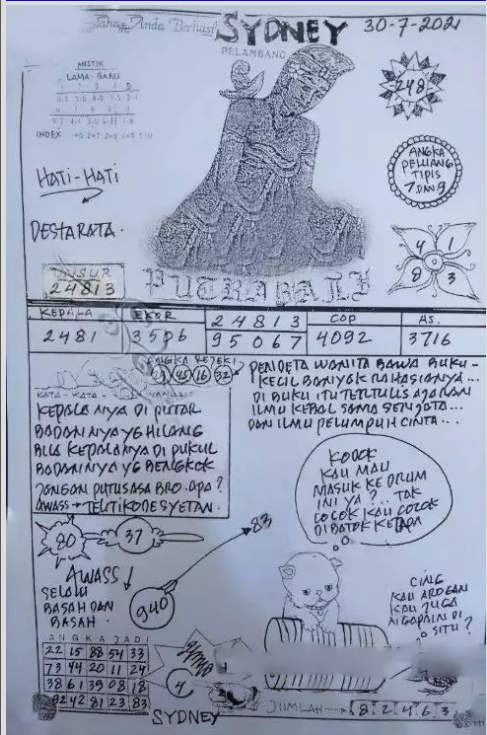 Anda Berhasil
SYDNEY
30-7-2021
PELAMBANG
MISTIK
LAMA - BARU
INDEX
248
HATI-HATI
ANGKA
PELUANG
TIPIS
7 DAN 9
DESTARATA.
4 1
8 3
24813
PUTRA BALI
KEPALA
EKOR
24813
COP
AS.
2481
3506
95067
4092
3716
45 16 32
PENDETA WANITA BAWA BUKU-
KECIL BANYAK RAHASIANYA...
DI BUKU ITU TERTULIS AJARAN
ILMU KEBAL SAMA SENJATA...
DAN ILMU PELUMPUH CINTA...
KATA - KATA
KEPALA NYA DI PUTAR
BADANNYA YG HILANG
BILA KEPALANYA DI PUKUL
BADANNYA YG BENGKOK
JANGAN PUTUS ASA BRO. APA?
AWASS → TELITI KODE SYETAN.
KODOK
KAU MAU
MASUK KE DRUM
INI YA? ... TAK
COCOK KAU COCOK
DIBATOK KETAPA
83
80
37
AWASS
SELALU
BASAH DAN
BASAH.
940
CING
KAU
KAU JUGA
NGAPAIN DI
SITU?
ANGKA JADI
22 15 88 54 33
73 44 20 11 24
38 61 39 08 18
92 42 81 23 83
4
SYDNEY
JUMLAH → 8 2 4 6 3